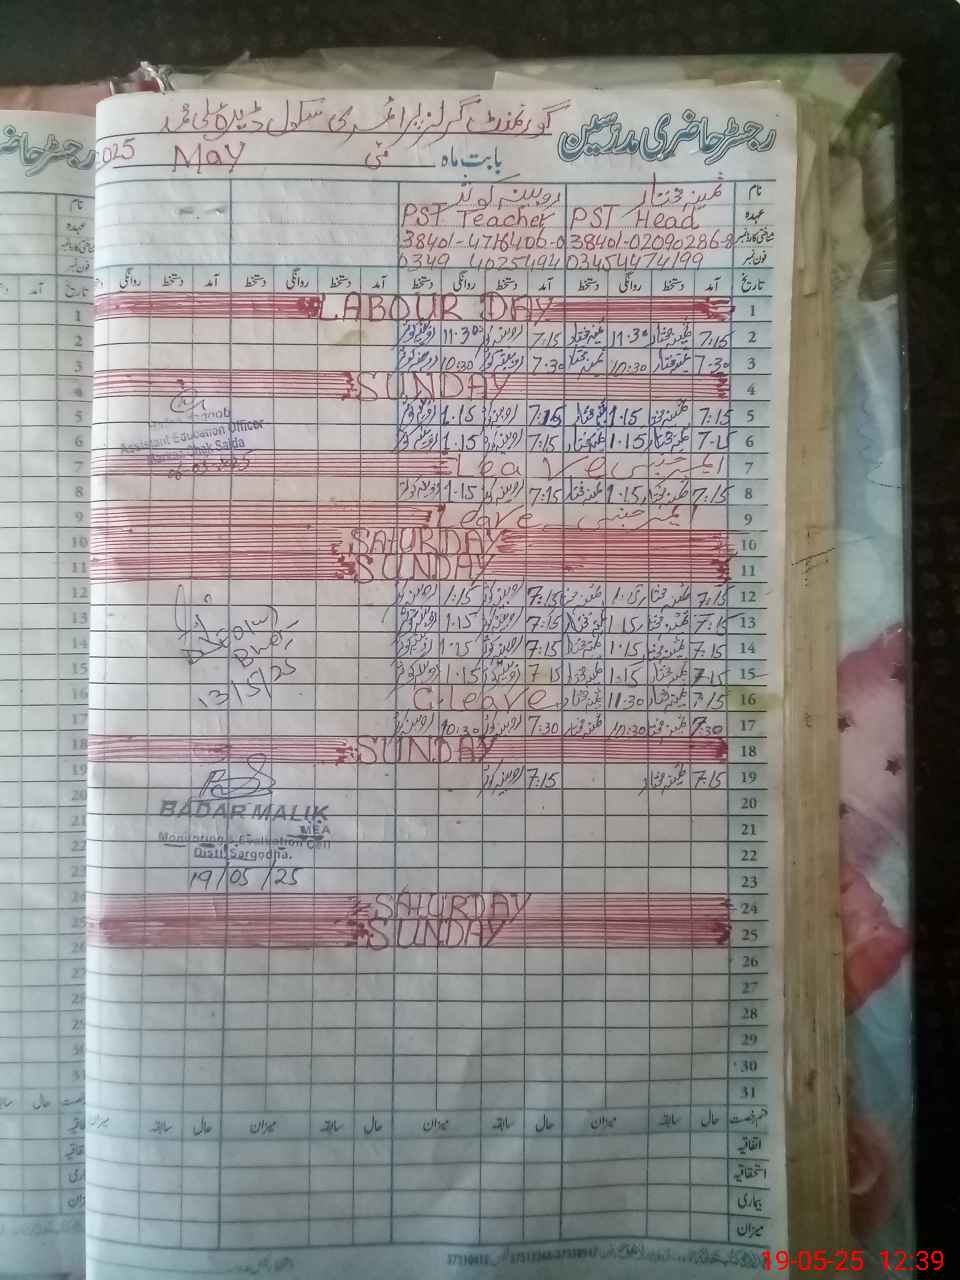 رجسٹر حاضری مدرسین
گورنمنٹ گرلز پرائمری سکول
بابت ماہ مئی May 2025
نام ثمینہ مختار روبینہ کوثر
عہدہ PST Head PST Teacher
شناختی کارڈ نمبر 38401-0209286-8 38401-4716406-0
فون نمبر 03454474199 0349 4025494
تاریخ آمد دستخط روانگی دستخط آمد دستخط روانگی دستخط آمد دستخط روانگی دستخط
1 LABOUR DAY
2 7:15 ثمینہ مختار 11.30 ثمینہ مختار 7:15 روبینہ کوثر 11.30 روبینہ کوثر
3 7.30 ثمینہ مختار 10:30 ثمینہ مختار 7.30 روبینہ کوثر 10:30 روبینہ کوثر
4 SUNDAY
5 7:15 ثمینہ مختار 1.15 ثمینہ مختار 7:15 روبینہ کوثر 1.15 روبینہ کوثر
6 7:15 ثمینہ مختار 1.15 ثمینہ مختار 7:15 روبینہ کوثر 1.15 روبینہ کوثر
Assistant Education Officer
7 Leave
8 7:15 ثمینہ مختار 1.15 ثمینہ مختار 7:15 روبینہ کوثر 1.15 روبینہ کوثر
9 Leave
10 SATURDAY
11 SUNDAY
12 7:15 ثمینہ مختار 1.15 ثمینہ مختار 7:15 روبینہ کوثر 1:15 روبینہ کوثر
13 7:15 ثمینہ مختار 1.15 ثمینہ مختار 7:15 روبینہ کوثر 1.15 روبینہ کوثر
14 7:15 ثمینہ مختار 1.15 ثمینہ مختار 7:15 روبینہ کوثر 1.15 روبینہ کوثر
15 7:15 ثمینہ مختار 1:15 ثمینہ مختار 7:15 روبینہ کوثر 1.15 روبینہ کوثر
13/5/25
16 7:15 ثمینہ مختار 11:30 ثمینہ مختار C.Leave
17 7:30 ثمینہ مختار 10:30 ثمینہ مختار 7:30 روبینہ کوثر 10:30 روبینہ کوثر
18 SUNDAY
19 7:15 ثمینہ مختار 7:15 روبینہ کوثر
20
BADAR MALIK
21
MEA
Monitoring & Evaluation Cell
22
Distt. Sargodha.
23
19/05/25
24 SATURDAY
25 SUNDAY
26
27
28
29
30
31
قسم رخصت حال سابقہ میزان حال سابقہ میزان حال سابقہ میزان
اتفاقیہ
استحقاقیہ
بیماری
میزان
19-05-25 12:39